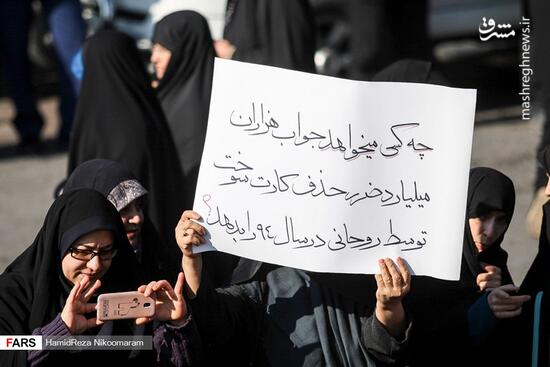 چه کسی میخواهد جواب هزاران
میلیارد ضرر حذف کارت سوخت
توسط روحانی در سال ۹۴ را بدهد؟
مشرق
mashreghnews.ir
FARS
HamidReza Nikoomaram